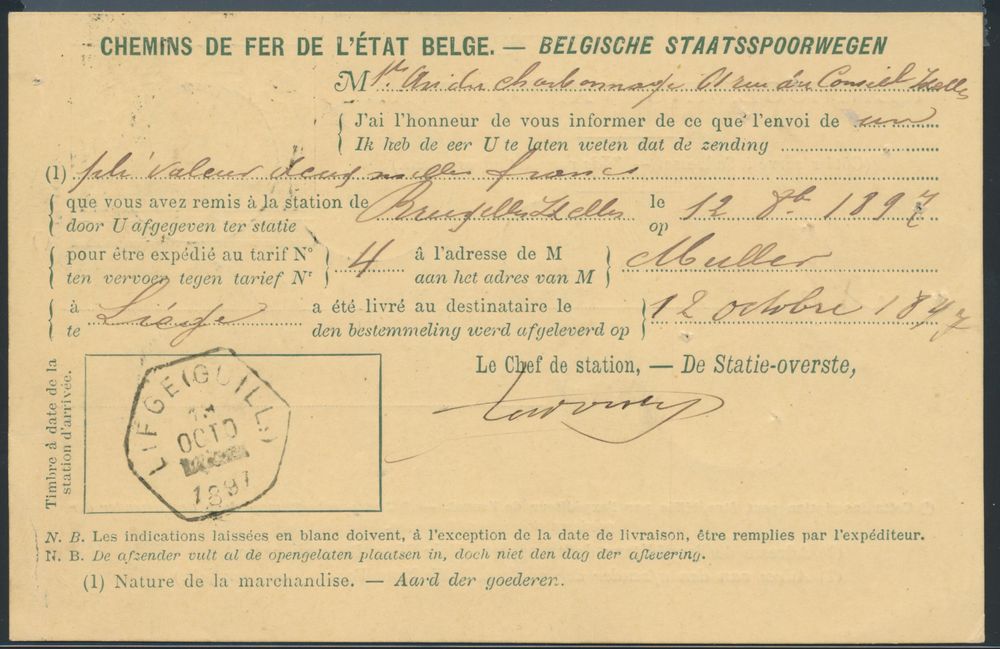 CHEMINS DE FER DE L'ÉTAT BELGE. — BELGISCHE STAATSSPOORWEGEN
M charbonnage 61 rue du Conseil Ixelles
J'ai l'honneur de vous informer de ce que l'envoi de un
Ik heb de eer U te laten weten dat de zending
(1) pli valeur deux milles francs
que vous avez remis à la station de Bruxelles Ixelles le 12 8b 1897
door U afgegeven ter statie op
pour être expédié au tarif N° 4 à l'adresse de M Muller
ten vervoer tegen tarief Nr aan het adres van M
à Liége a été livré au destinataire le 12 octobre 1897
te den bestemmeling werd afgeleverd op
Le Chef de station, — De Statie-overste,
Timbre à date de la
station d'arrivée.
LIEGE (GUILL.)
OCTO
1897
N. B. Les indications laissées en blanc doivent, à l'exception de la date de livraison, être remplies par l'expéditeur.
N. B. De afzender vult al de opengelaten plaatsen in, doch niet den dag der aflevering.
(1) Nature de la marchandise. — Aard der goederen.